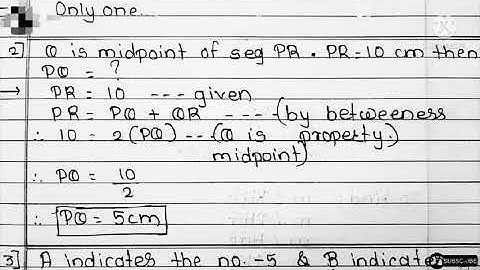 Only one...
2] Q is midpoint of seg PR. PR=10 cm then
PQ = ?
→ PR = 10 --- given
PR = PQ + QR ----(by betweeness
∴ 10 = 2(PQ) ---(Q is property.)
midpoint)
∴ PQ = 10/2
∴ PQ = 5cm
3] A indicates the no. -5 & B indicate
SUBSCRIBE